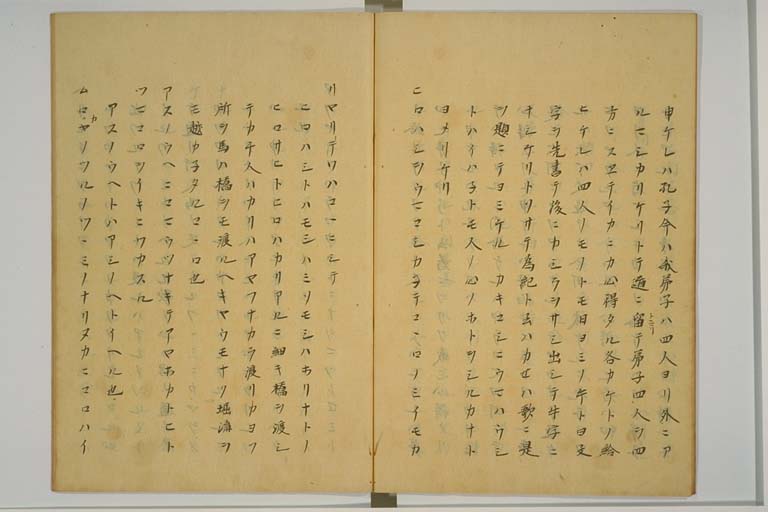 申ケレハ孔子今ハ我弟子ハ四人ヨリ外ニア
ルマシカリケリトテ道ニ留テ弟子四人ヲ四
方ニスヱテイカニカ心得タル各カケトノ給
ヒケレハ四人ノモノトモ日ヨミノ午トヨ文
字ヲ先書テ後ニカシラヲサシ出シテ牛字ニ
ナシケリトソサテ為記ト云ハカセハ歌ニ是
ヲ題ニテヨミケルハカキコシニウマハウシ
トハイハ子トモ人ノ心ノホトヲシルカナト
ヨメリケリ
ニロハシヲウマコシカ子テコヽロノミイモカ
リヤリテワハコヽニシテ
ニロハシトハモシハミソモシハホリナトノ
ヒロサヒトヒロハカリアルニ細キ橋ヲ渡シ
テカチ人ハカリハアヤフナカラ渡リカヨフ
所ヲ馬ハ橋ヲモ渡ルヘキヤウモナク堀溝ヲ
モ越カ子タルコヽロ也
アスノウヘニコマヲツナキテアヤホカトヒト
ツマコロヲイキニワカスル
アスノウヘトハアシノヘトイヘル也
ムロカヤノツルノツヽミノナリヌカニコロハイ